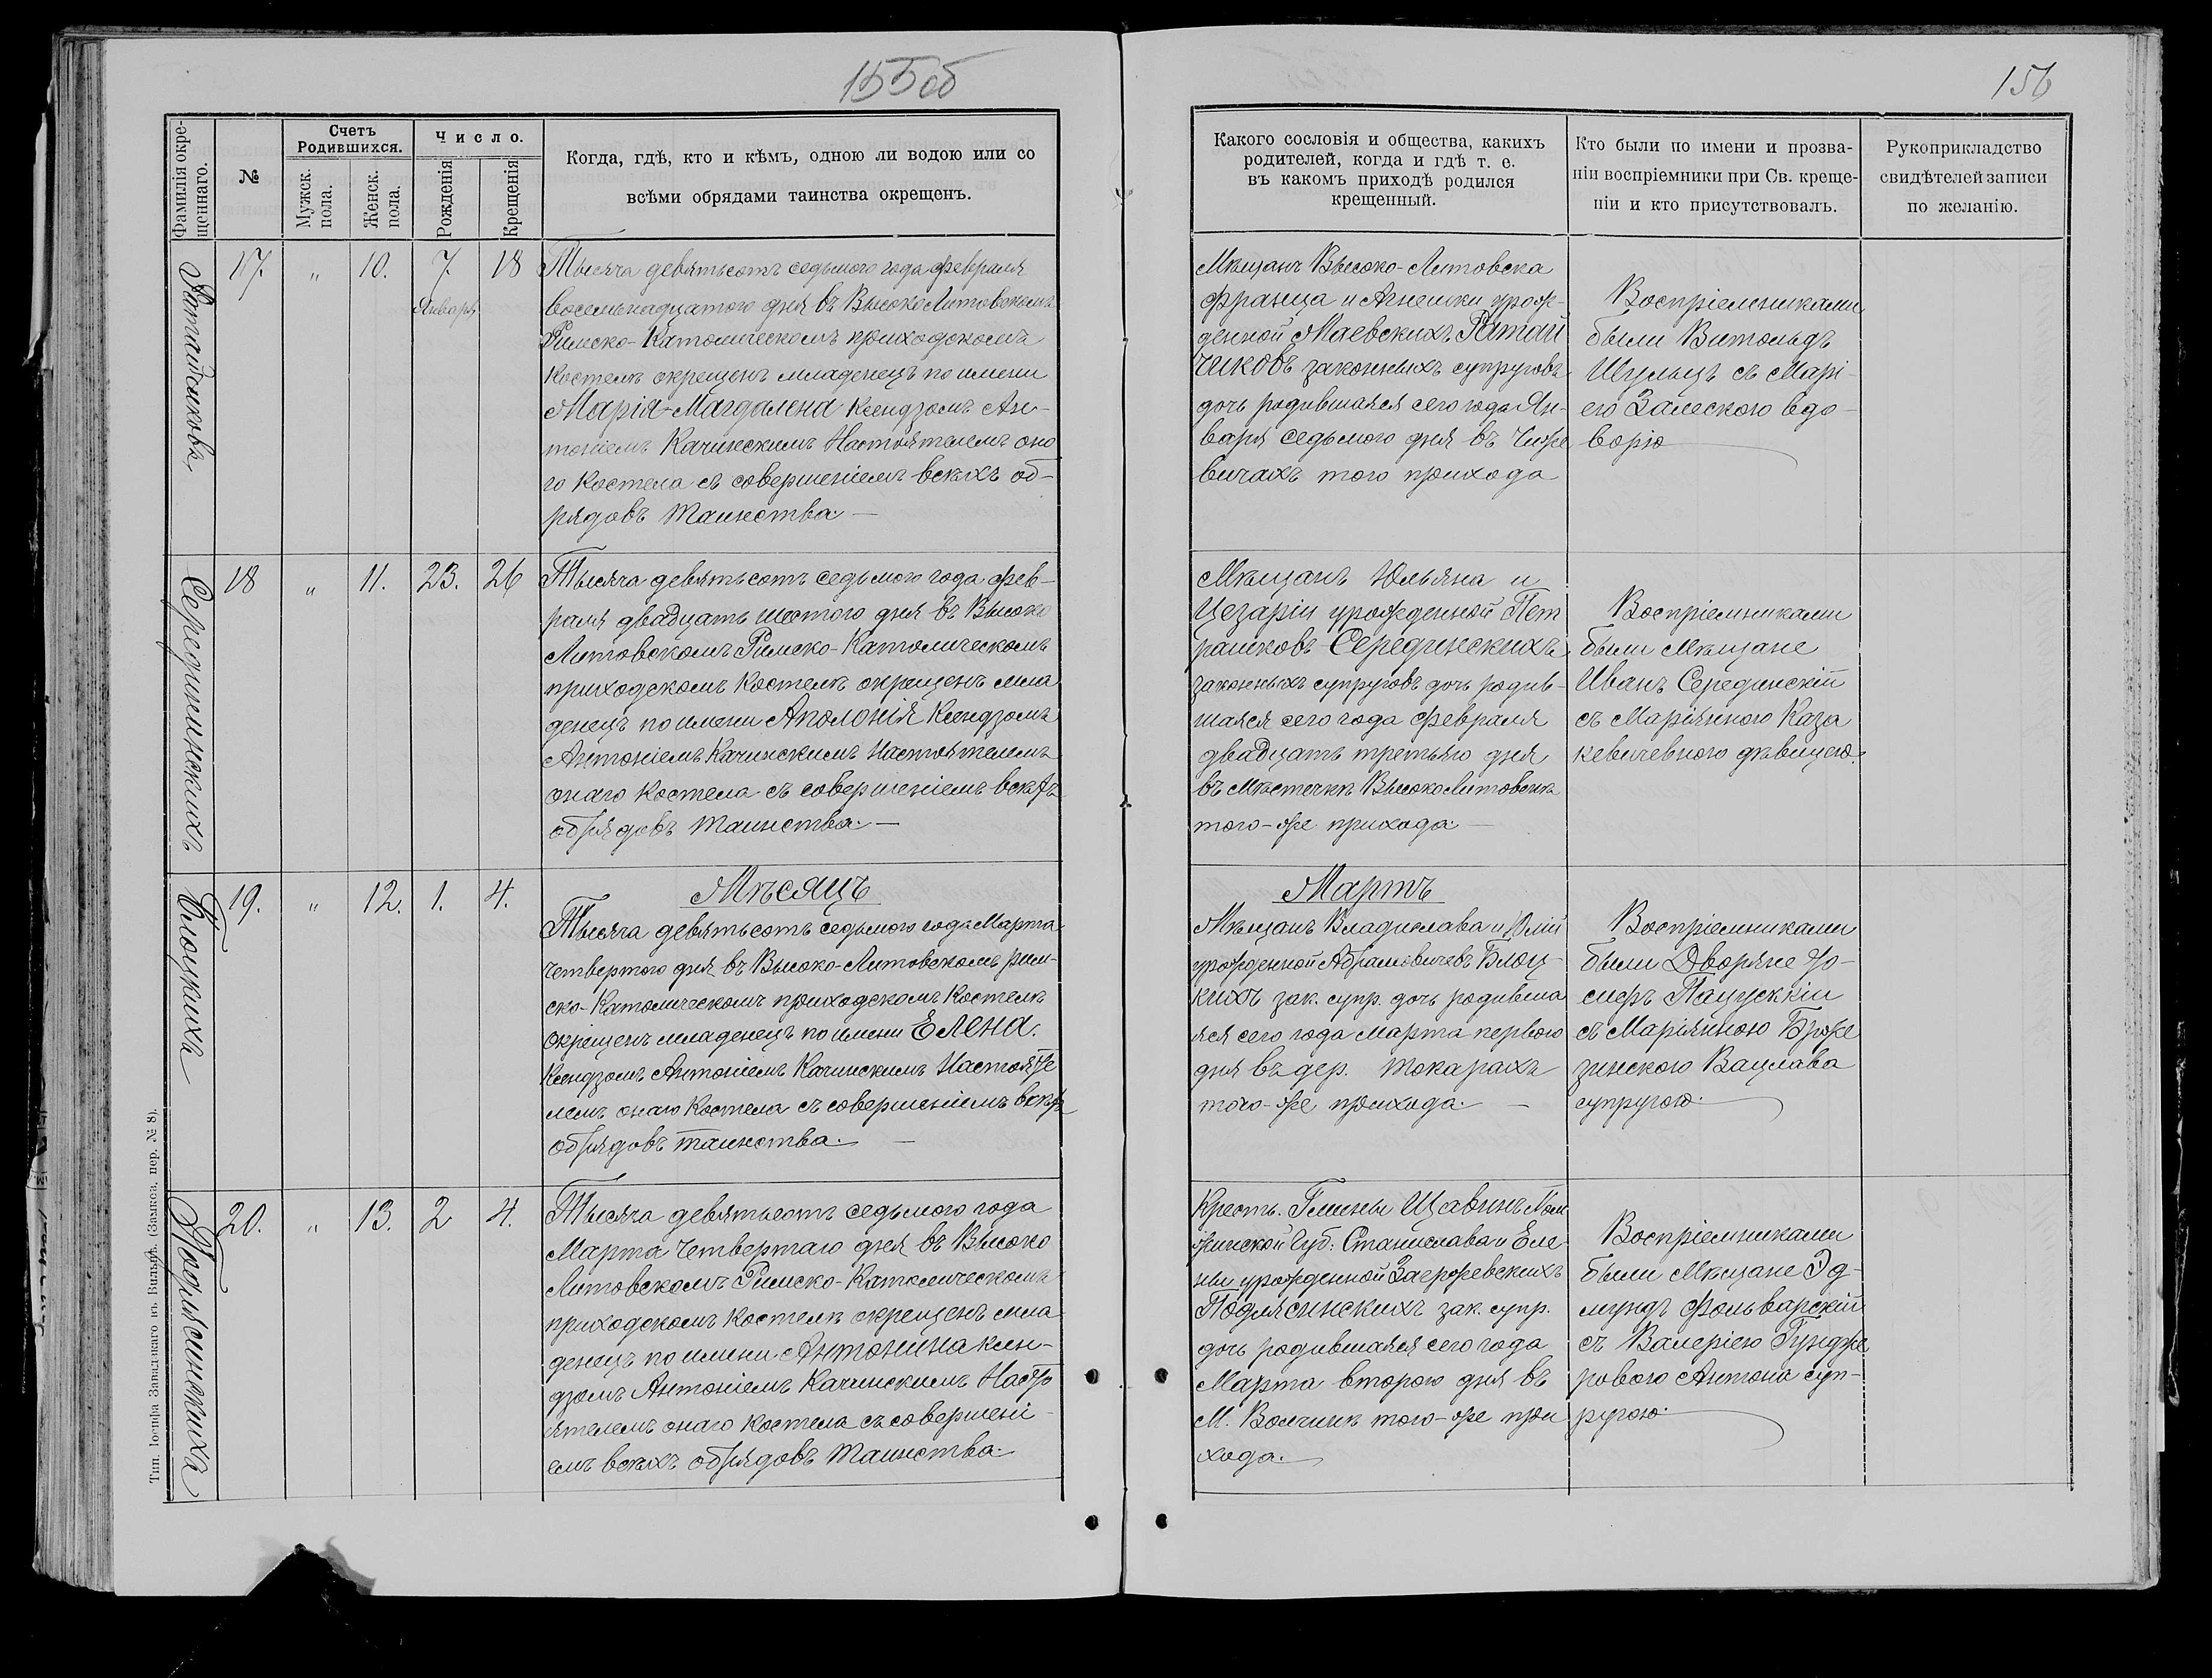 155 об
156
Фамилія окре-
щеннаго.
№
Счетъ
Родившихся.
Мужск.
пола.
Женск.
пола.
Число.
Рожденія
Крещенія
Когда, гдѣ, кто и кѣмъ, одною ли водою или со
всѣми обрядами таинства окрещенъ.
Какого сословія и общества, какихъ
родителей, когда и гдѣ т. е.
въ какомъ приходѣ родился
крещенный.
Кто были по имени и прозва-
ніи воспріемники при Св. креще-
ніи и кто присутствовалъ.
Рукоприкладство
свидѣтелей записи
по желанію.
Ратайчиковъ
17. " 10. 7. 18
Января
Тысяча девятьсотъ седьмого года февраля
восемьнадцатого дня въ Высоко Литовскомъ
Римско-Католическомъ приходскомъ
Костелѣ окрещенъ младенецъ по имени
Марія-Магдалена Ксендзомъ Ан-
тоніемъ Качинскимъ Настоятелемъ она
го Костела съ совершеніемъ всѣхъ об-
рядовъ Таинства. —
Мѣщанъ Высоко-Литовска
Франца и Агнешки урож-
денной Маевскихъ Ратай
чиковъ законныхъ супруговъ
дочь родившаяся сего года Ян-
варя седьмого дня въ
вичахъ того прихода
Воспріемниками
были Витольдъ
Шульцъ съ Марі-
ею Залескою вдо-
ворю
Серединскихъ
18 " 11. 23. 26
Тысяча девятьсотъ седьмого года фев-
раля двадцать шестого дня въ Высоко
Литовскомъ Римско-Католическомъ
приходскомъ Костелѣ окрещенъ мла
денецъ по имени Аполонія Ксендзомъ
Антоніемъ Качинскимъ Настоятелемъ
онаго Костела съ совершеніемъ всѣхъ
обрядовъ Таинства. —
Мѣщанъ Юльяна и
Цезаріи урожденной Пет
рашковъ Серединскихъ
законныхъ супруговъ дочь родив-
шаяся сего года февраля
двадцать третьяго дня
въ мѣстечкѣ Высоко Литовскѣ
того-же прихода —
Воспріемниками
были Мѣщане
Иванъ Серединскій
съ Маріянною Каза
кевичевною дѣвицею.
Блоцкихъ
19. " 12. 1. 4.
Мѣсяцъ
Тысяча девятьсотъ седьмого года Марта
четвертого дня въ Высоко-Литовскомъ рим-
ско-Католическомъ приходскомъ Костелѣ
окрещенъ младенецъ по имени Елена.
Ксендзомъ Антоніемъ Качинскимъ Настояте
лемъ онаго Костела съ совершеніемъ всѣхъ
обрядовъ таинства. —
Мартъ
Мѣщанъ Владислава и Юліи
урожденной Абрамовичевъ Блоц-
кихъ зак. супр. дочь родивша
яся сего года марта первого
дня въ дер. Токарахъ
того-же прихода. —
Воспріемниками
были Дворяне Ю-
Пацускій
съ Маріянною Бже
зинскою Вацлава
супругою.
Подлясинскихъ
20. " 13. 2 4.
Тысяча девятьсотъ седьмого года
Марта четвертаго дня въ Высоко
Литовскомъ Римско-Католическомъ
приходскомъ Костелѣ окрещенъ мла
денецъ по имени Антонина ксен-
дзомъ Антоніемъ Качинскимъ Насто
ятелемъ онаго Костела съ совершені-
емъ всѣхъ обрядовъ Таинства.
Крестъ. Гмины Щавинъ Лом
жинской Губ. Станислава и Еле-
ны урожденной
Подлясинскихъ зак. супр.
дочь родившаяся сего года
Марта второго дня въ
М. Волчинѣ того-же при
хода.
Воспріемниками
были Мѣщане Эд-
мундъ Фольварскій
съ Валеріею Гундже
ровою Антона суп-
ругою.
Тип. Іосифа Завадзкаго въ Вильнѣ. (Замков. пер. № 8).